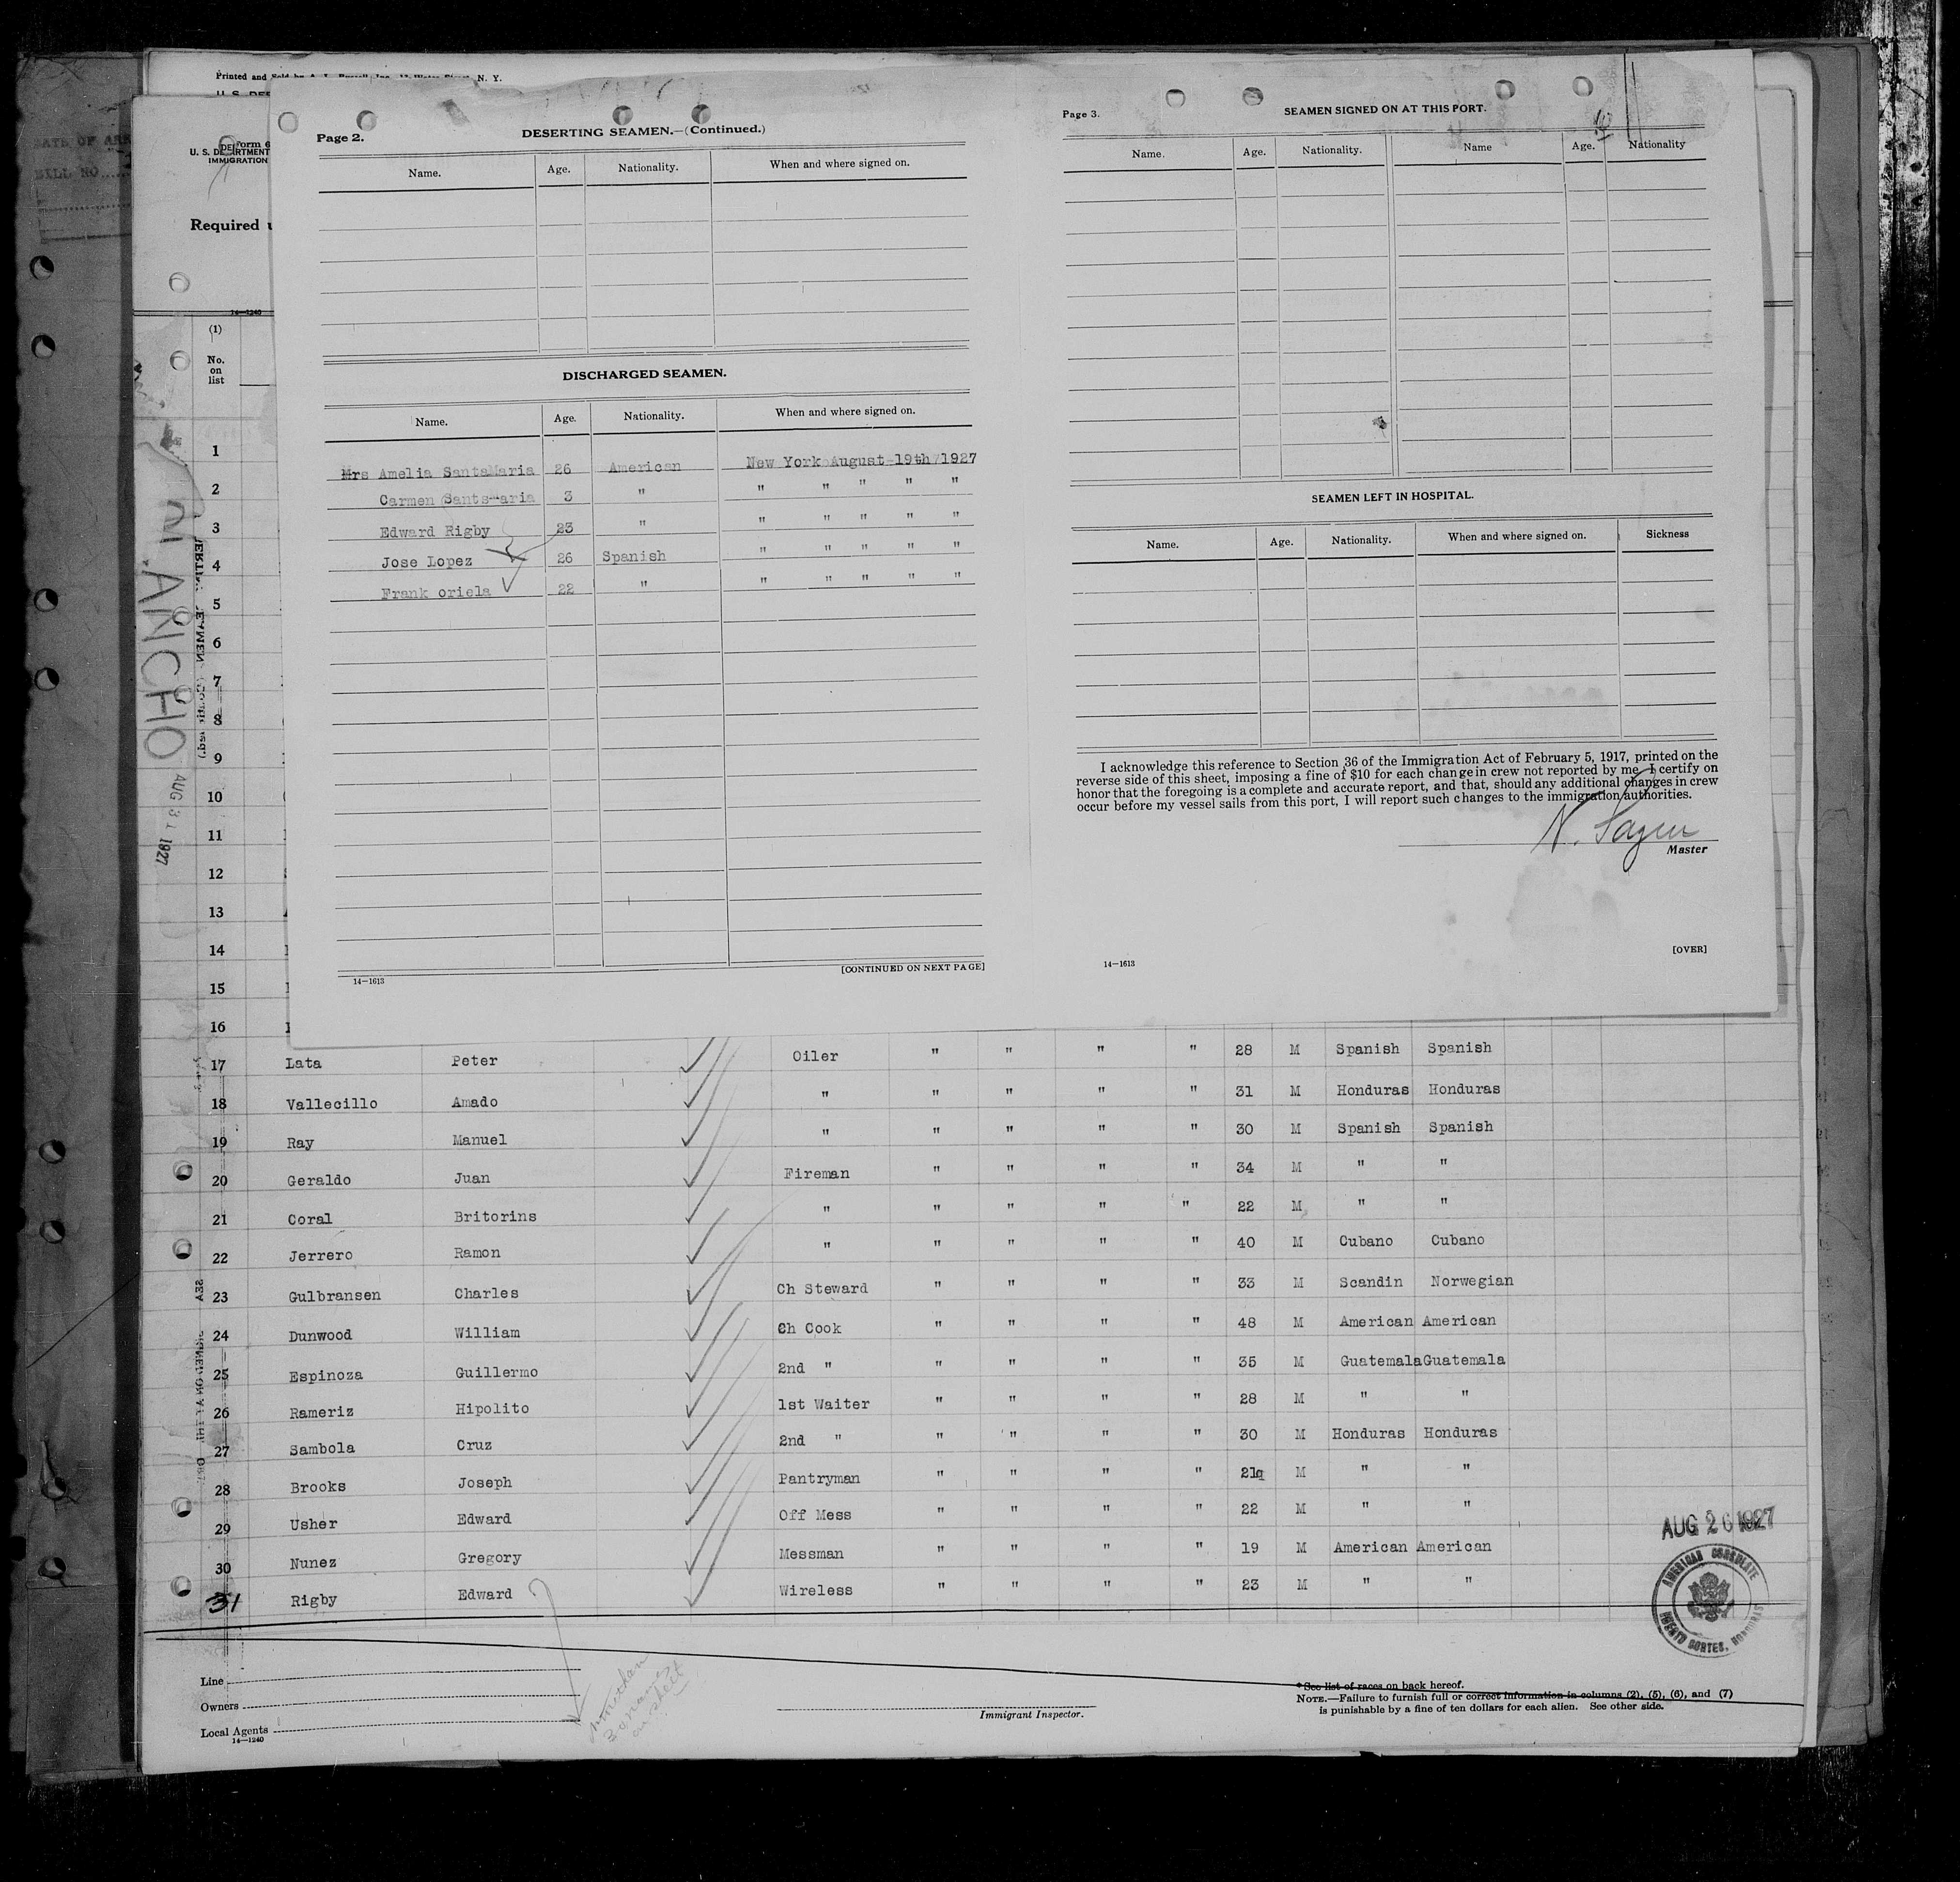 Printed and Sold by A. L. Russell, Inc., 12 Water Street, N. Y.
U. S. DEPARTMENT
IMMIGRATION
Required
14—1240
(1)
No.
on
list
1
2
3
4
5
6
7
8
9
10
11
12
13
14
15
16
AUG 31 1927
Page 2.
DESERTING SEAMEN.—(Continued.)
Name. Age. Nationality. When and where signed on.
DISCHARGED SEAMEN.
Name. Age. Nationality. When and where signed on.
Mrs Amelia SantaMaria 26 American New York August 19th 1927
Carmen Santsmaria 3 " " " " " "
Edward Rigby 23 " " " " " "
Jose Lopez 26 Spanish " " " " "
Frank oriela 22 " " " " " "
[CONTINUED ON NEXT PAGE]
14—1613
Page 3.
SEAMEN SIGNED ON AT THIS PORT.
Name. Age. Nationality. Name Age. Nationality
SEAMEN LEFT IN HOSPITAL.
Name. Age. Nationality. When and where signed on. Sickness
I acknowledge this reference to Section 36 of the Immigration Act of February 5, 1917, printed on the
reverse side of this sheet, imposing a fine of $10 for each change in crew not reported by me. I certify on
honor that the foregoing is a complete and accurate report, and that, should any additional changes in crew
occur before my vessel sails from this port, I will report such changes to the immigration authorities.
Master
[OVER]
14—1613
17 Lata Peter Oiler " " " " 28 M Spanish Spanish
18 Vallecillo Amado " " " " " 31 M Honduras Honduras
19 Ray Manuel " " " " " 30 M Spanish Spanish
20 Geraldo Juan Fireman " " " " 34 M " "
21 Coral Britorins " " " " " 22 M " "
22 Jerrero Ramon " " " " " 40 M Cubano Cubano
23 Gulbransen Charles Ch Steward " " " " 33 M Scandin Norwegian
24 Dunwood William Ch Cook " " " " 48 M American American
25 Espinoza Guillermo 2nd " " " " " 35 M Guatemala Guatemala
26 Rameriz Hipolito 1st Waiter " " " " 28 M " "
27 Sambola Cruz 2nd " " " " " 30 M Honduras Honduras
28 Brooks Joseph Pantryman " " " " 21 M " "
29 Usher Edward Off Mess " " " " 22 M " "
30 Nunez Gregory Messman " " " " 19 M American American
31 Rigby Edward Wireless " " " " 23 M " "
AUG 26 1927
AMERICAN CONSULATE
PUERTO CORTES, HONDURAS
Line
Owners
Local Agents
14—1240
more than
30 names
on sheet
Immigrant Inspector.
* See list of races on back hereof.
NOTE.—Failure to furnish full or correct information in columns (2), (5), (6), and (7)
is punishable by a fine of ten dollars for each alien. See other side.